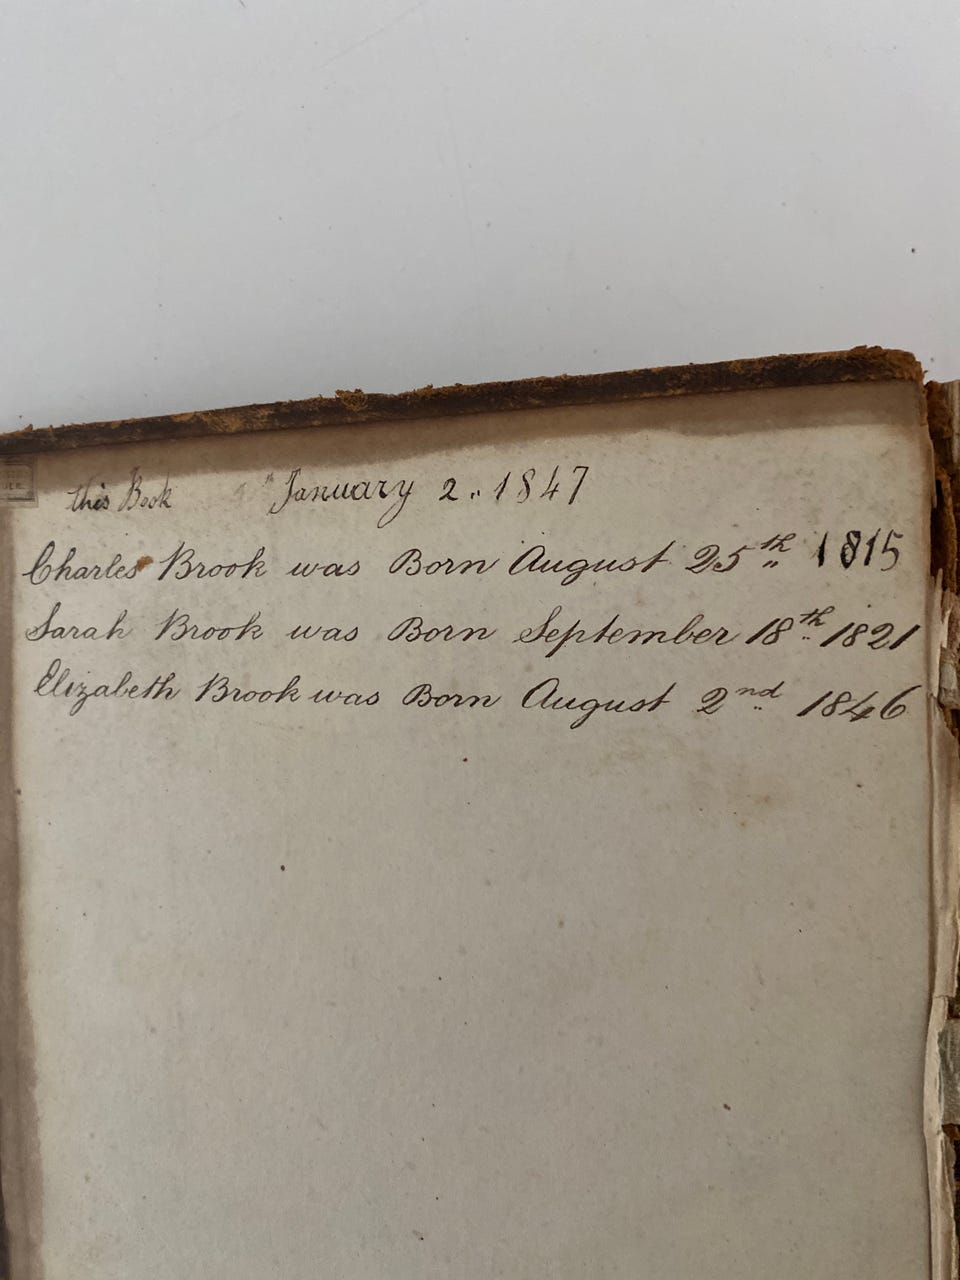 this Book January 2 1847
Charles Brook was Born August 25th 1815
Sarah Brook was Born September 18th 1821
Elizabeth Brook was Born August 2nd 1846